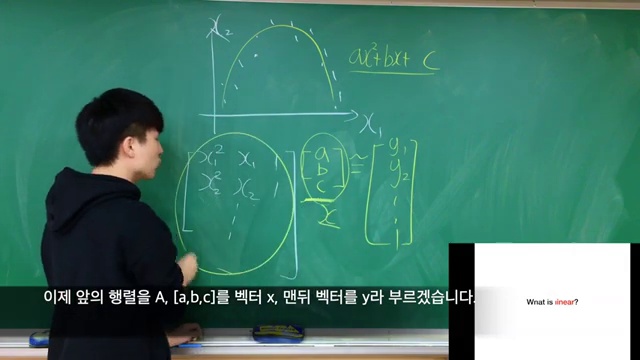 x₂
ax²+bx+c
x₁
x₁² x₁ 1 a ≈ y₁
x₂² x₂ 1 b y₂
c
x
이제 앞의 행렬을 A, [a,b,c]를 벡터 x, 맨뒤 벡터를 y라 부르겠습니다.
What is linear?